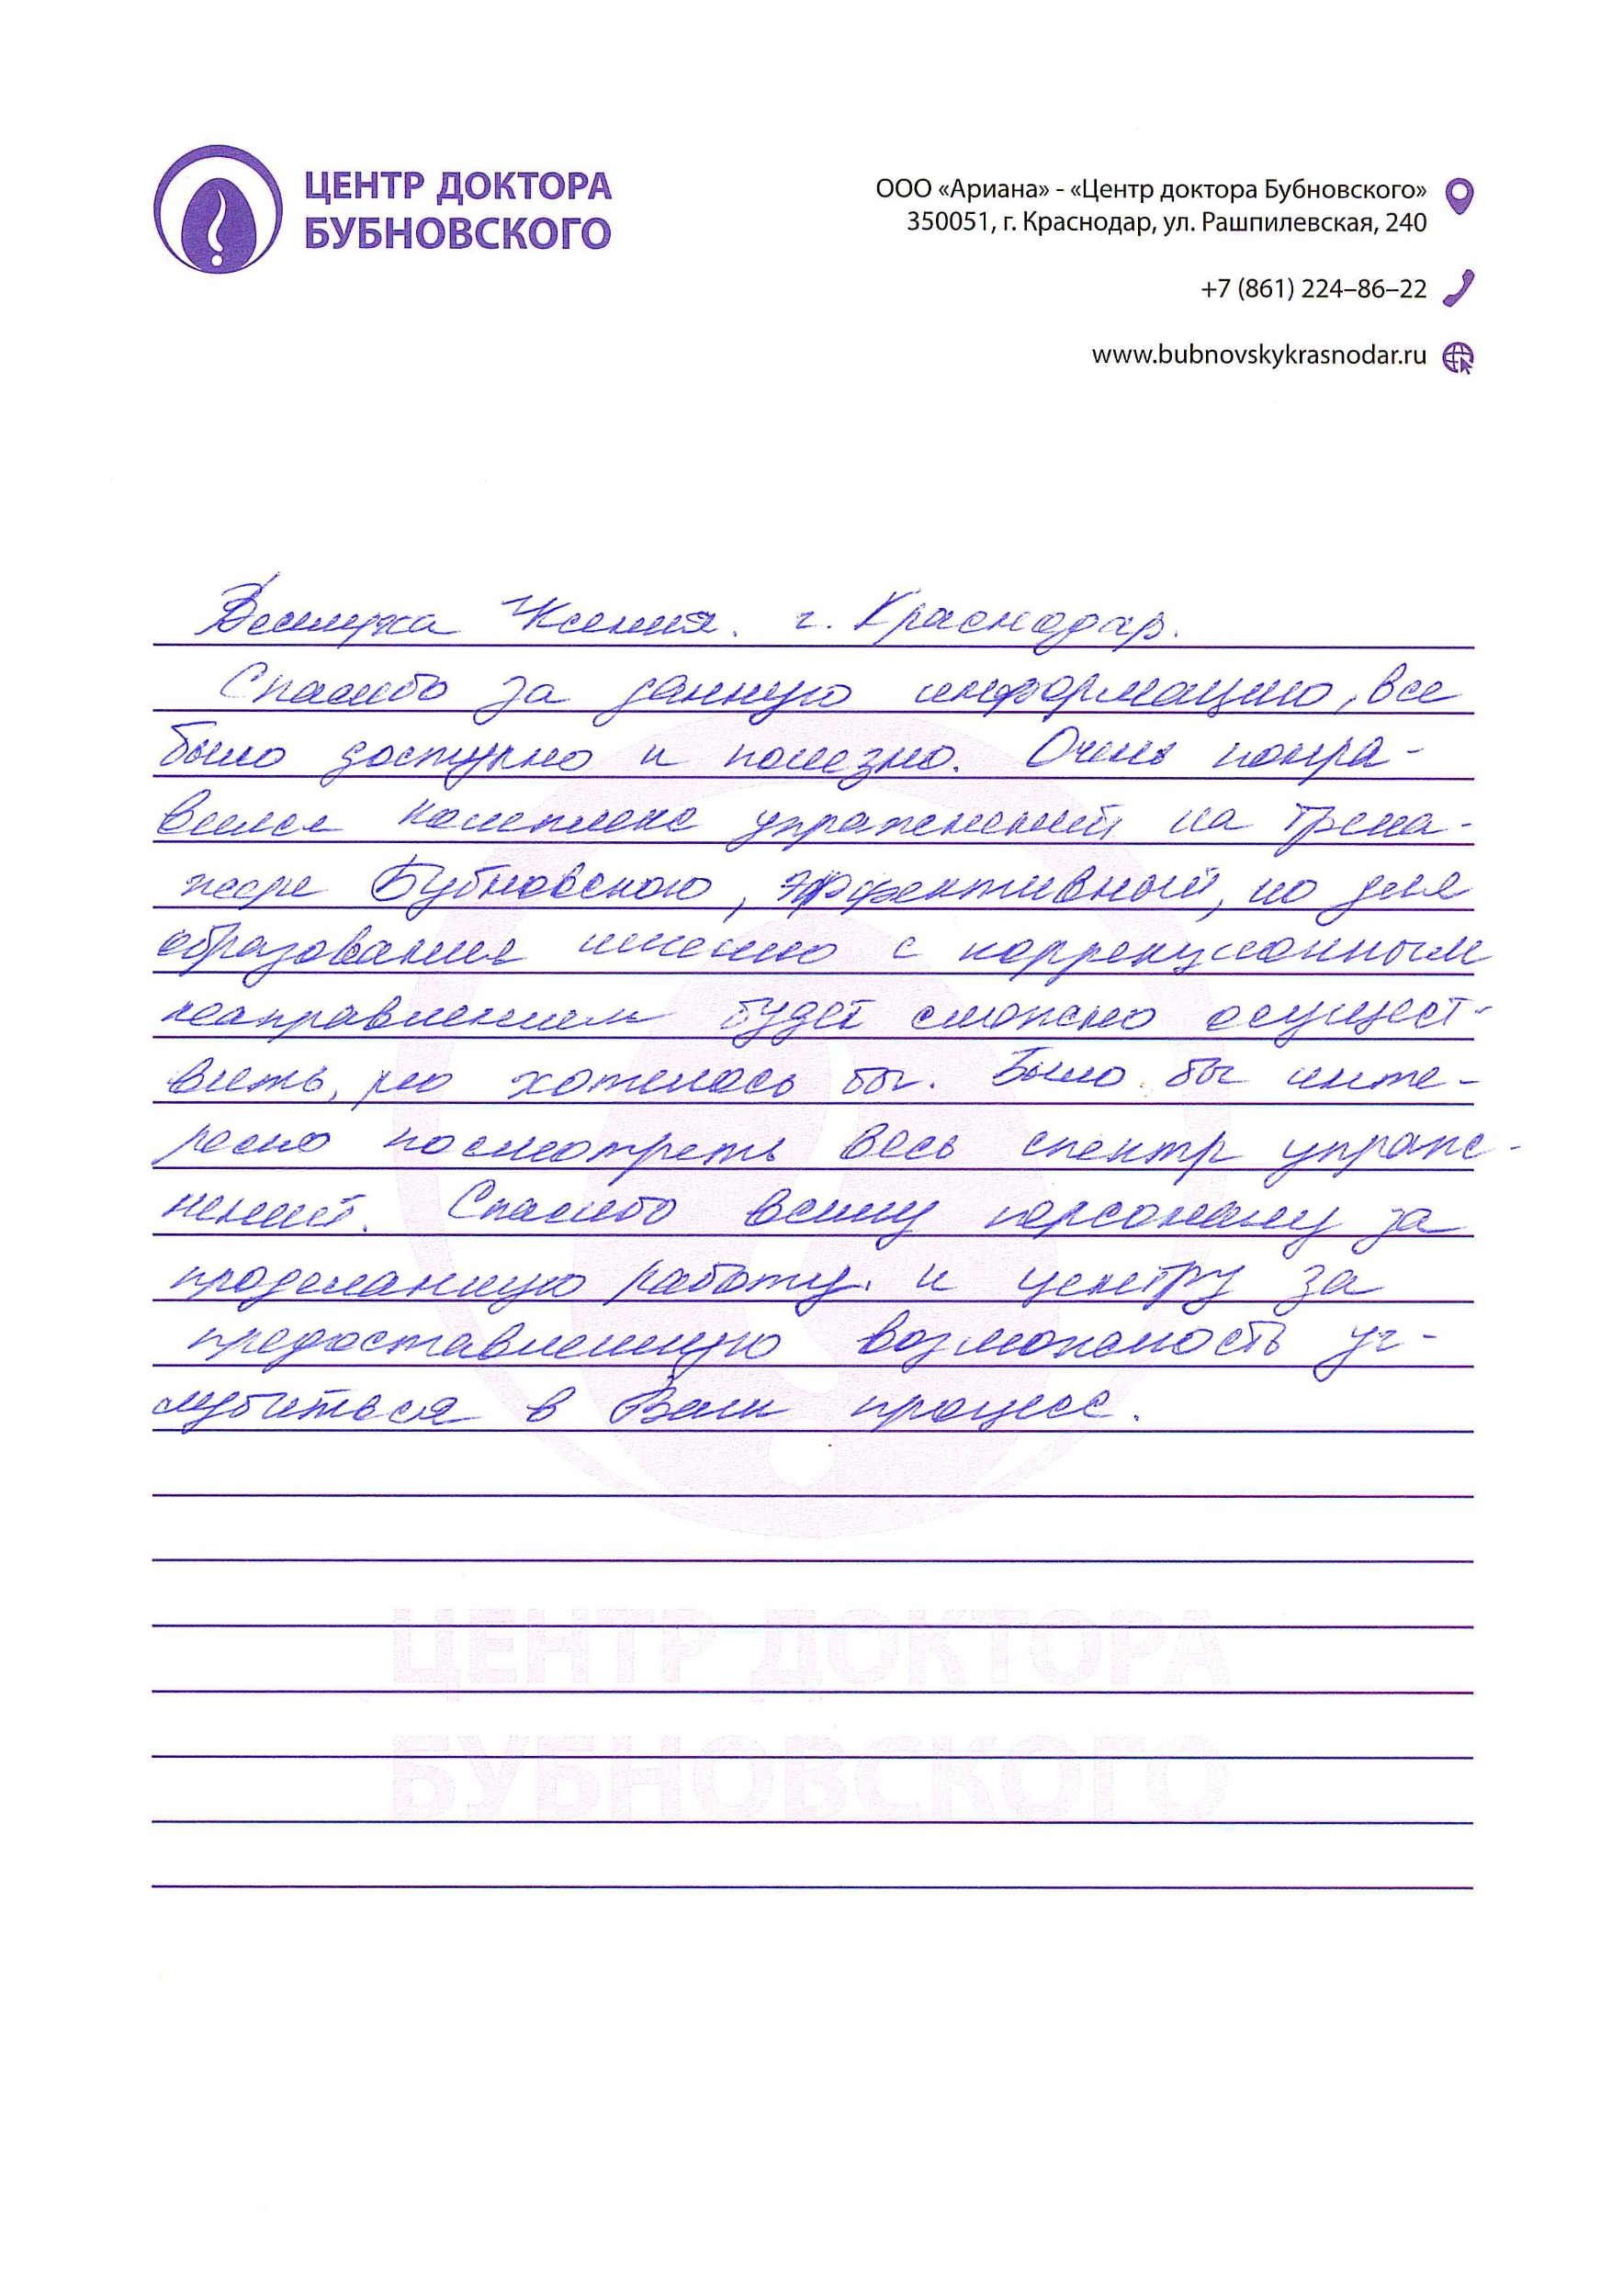 ЦЕНТР ДОКТОРА
БУБНОВСКОГО
ООО «Ариана» - «Центр доктора Бубновского»
350051, г. Краснодар, ул. Рашпилевская, 240
+7 (861) 224–86–22
www.bubnovskykrasnodar.ru
Ксения. г. Краснодар.
Спасибо за данную информацию, все
было доступно и полезно. Очень понра-
вился комплекс упражнений на трена-
жере Бубновского, эффективный, но для
образования именно с коррекционным
направлением будет сложно осущест-
вить, но хотелось бы. Было бы инте-
ресно посмотреть весь спектр упраж-
нений. Спасибо всему персоналу за
проделанную работу и центру за
предоставленную возможность уг-
лубиться в Ваш процесс.
ЦЕНТР ДОКТОРА
БУБНОВСКОГО